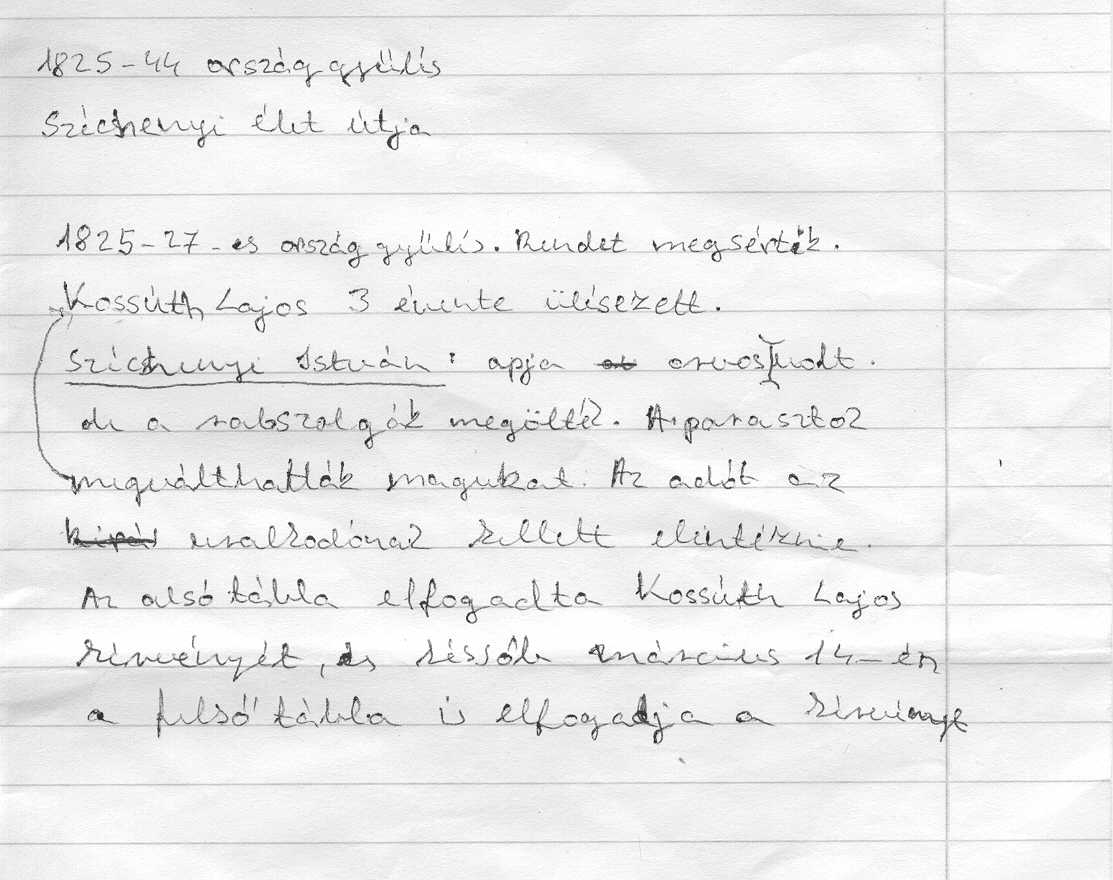 1825-44 országgyűlés
Széchenyi élet útja
1825-27-es ország gyűlés. Rendet megsérték.
Kossúth Lajos 3 évente ülésezett.
Széchenyi István: apja orvos volt.
de a rabszolgák megölték. A parasztok
megválthatták magukat. Az adót az
uralkodónak kellett elintéznie.
Az alsó tábla elfogadta Kossúth Lajos
kérvényét, és később március 14-én
a felső tábla is elfogadja a kérvényt